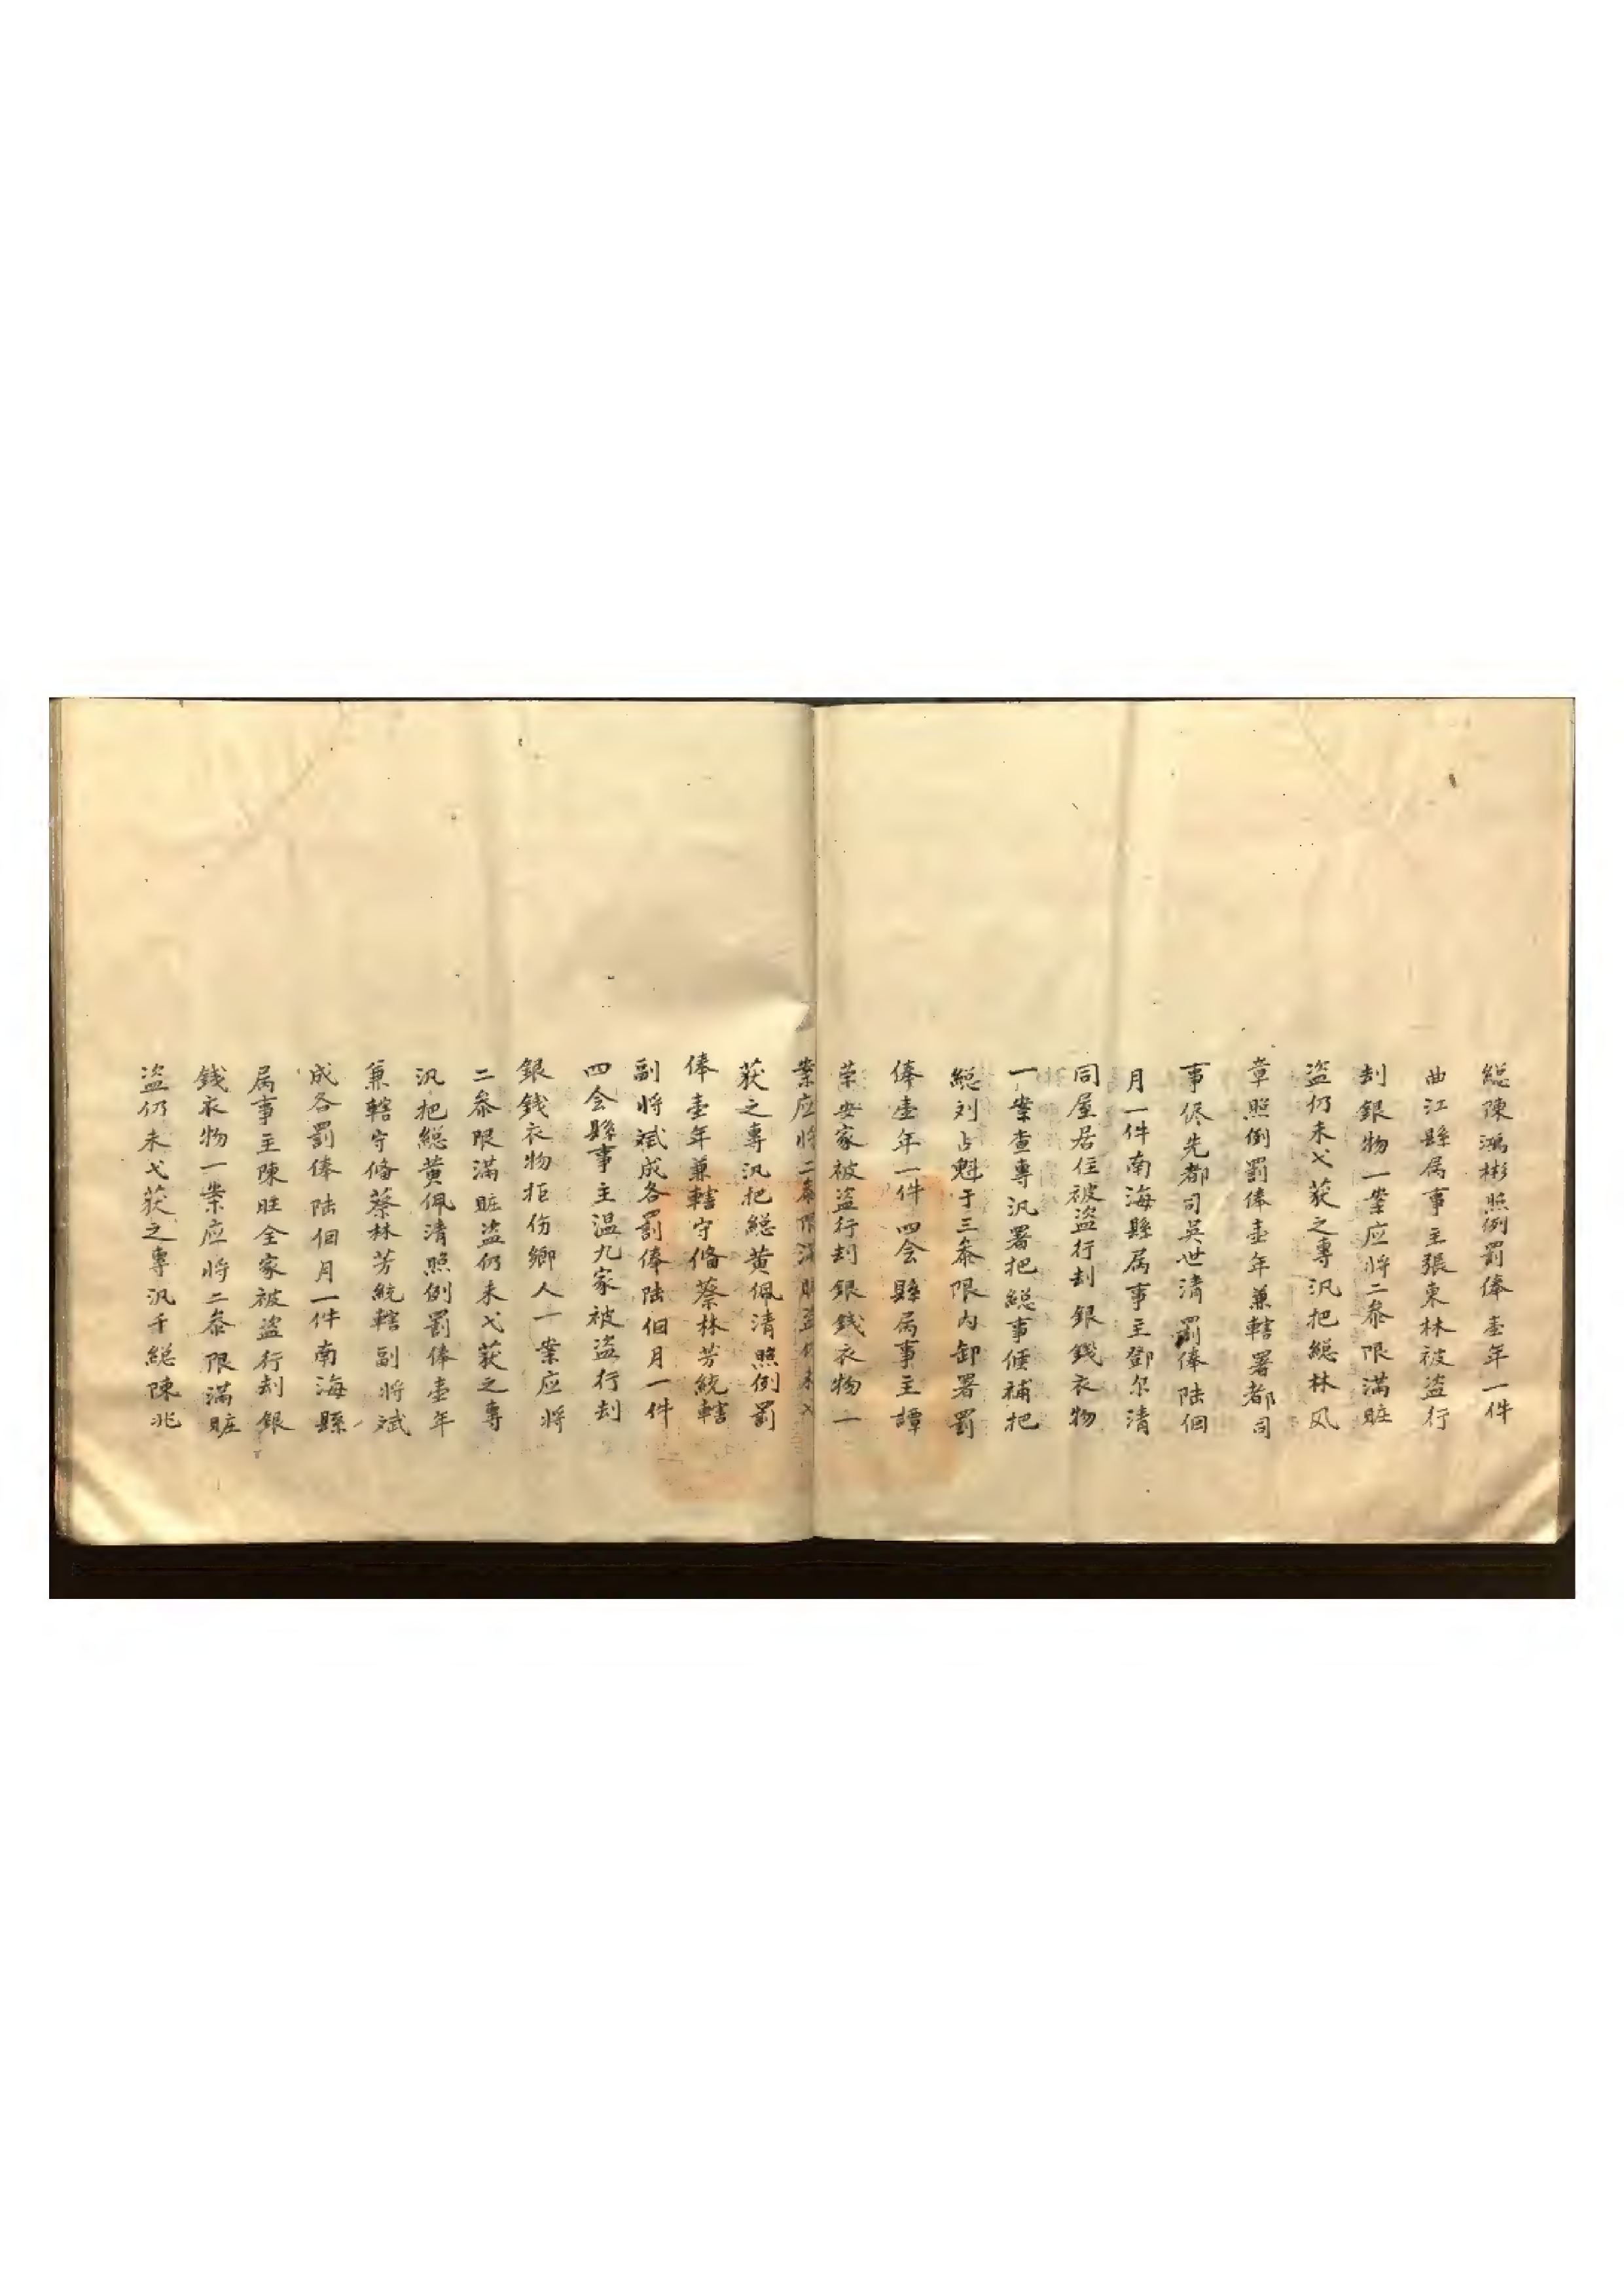 総陳鴻彬照例罰俸壹年一件
曲江縣属事主張東林被盗行
刦銀物一案应將二叅限滿賍
盗仍未弋荻之專汛把総林风
章照例罰俸壹年兼轄署都司
事侭先都司吳世清罰俸陆個
月一件南海縣属事主鄧尔清
同屋居住被盗行刦銀錢衣物
一案查專汛署把総事候補把
総刘占魁于三叅限内卸署罰
俸壹年一件四会縣属事主譚
荣安家被盗行刦銀錢衣物一
案应將二叅限滿賍盗仍未弋
荻之專汛把総黄佩清照例罰
俸壹年兼轄守俻蔡林芳統轄
副將斌成各罰俸陆個月一件
四会縣事主温九家被盗行刦
銀錢衣物拒伤鄉人一案应將
二叅限滿賍盗仍未弋荻之專
汛把総黄佩清照例罰俸壹年
兼轄守俻蔡林芳統轄副將斌
成各罰俸陆個月一件南海縣
属事主陳胜全家被盗行刦銀
錢衣物一案应將二叅限滿賍
盗仍未弋荻之專汛千総陳兆